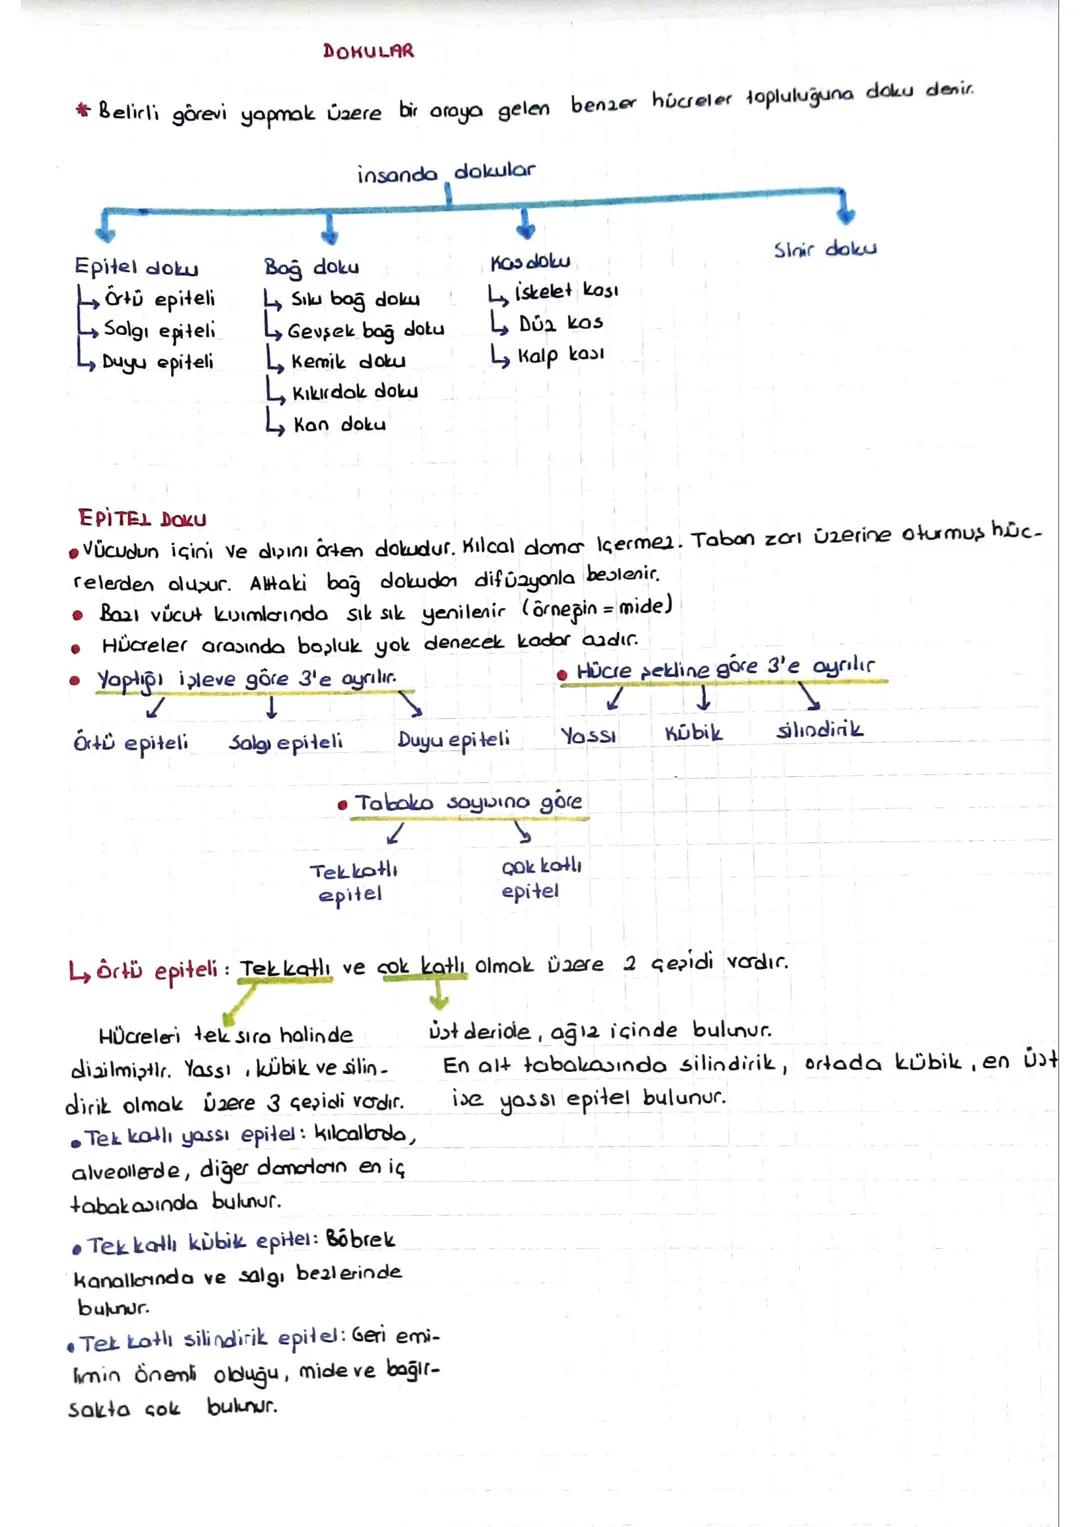 DOKULAR
* Belirli görevi yapmak üzere bir araya gelen benzer hücreler topluluğuna doku denir.
insanda dokular
Epitel doku
Örtü epiteli
Salgı epiteli
Duyu epiteli
Bağ doku
Sıkı bağ doku
Gevşek bağ doku
Kemik doku
Kıkırdak doku
Kan doku
Kas doku
İskelet kası
Düz kas
Kalp kası
Sinir doku
EPİTEL DOKU
• Vücudun içini ve dışını örten dokudur. Kılcal damar içermez. Taban zarı üzerine oturmuş hüc-
relerden oluşur. Alttaki bağ dokudan difüzyonla beslenir.
• Bazı vücut kısımlarında sık sık yenilenir (örneğin = mide)
• Hücreler arasında boşluk yok denecek kadar azdır.
• Yaptığı işleve göre 3'e ayrılır.
Örtü epiteli Salgı epiteli Duyu epiteli
• Hücre şekline göre 3'e ayrılır
Yassı Kübik silindirik
• Tabaka sayısına göre
Tek katlı
epitel
çok katlı
epitel
↳ Örtü epiteli: Tek katlı ve çok katlı olmak üzere 2 çeşidi vardır.
Hücreleri tek sıra halinde
dizilmiştir. Yassı, kübik ve silin-
dirik olmak üzere 3 çeşidi vardır.
• Tek katlı yassı epitel: kılcallarda,
alveollerde, diğer damarların en iç
tabakasında bulunur.
• Tek katlı kübik epitel: Böbrek
kanallarında ve salgı bezlerinde
bulunur.
• Tek katlı silindirik epitel: Geri emi-
limin önemli olduğu, mide ve bağır-
sakta çok bulunur.
üst deride, ağız içinde bulunur.
En alt tabakasında silindirik, ortada kübik, en üst
ise yassı epitel bulunur.